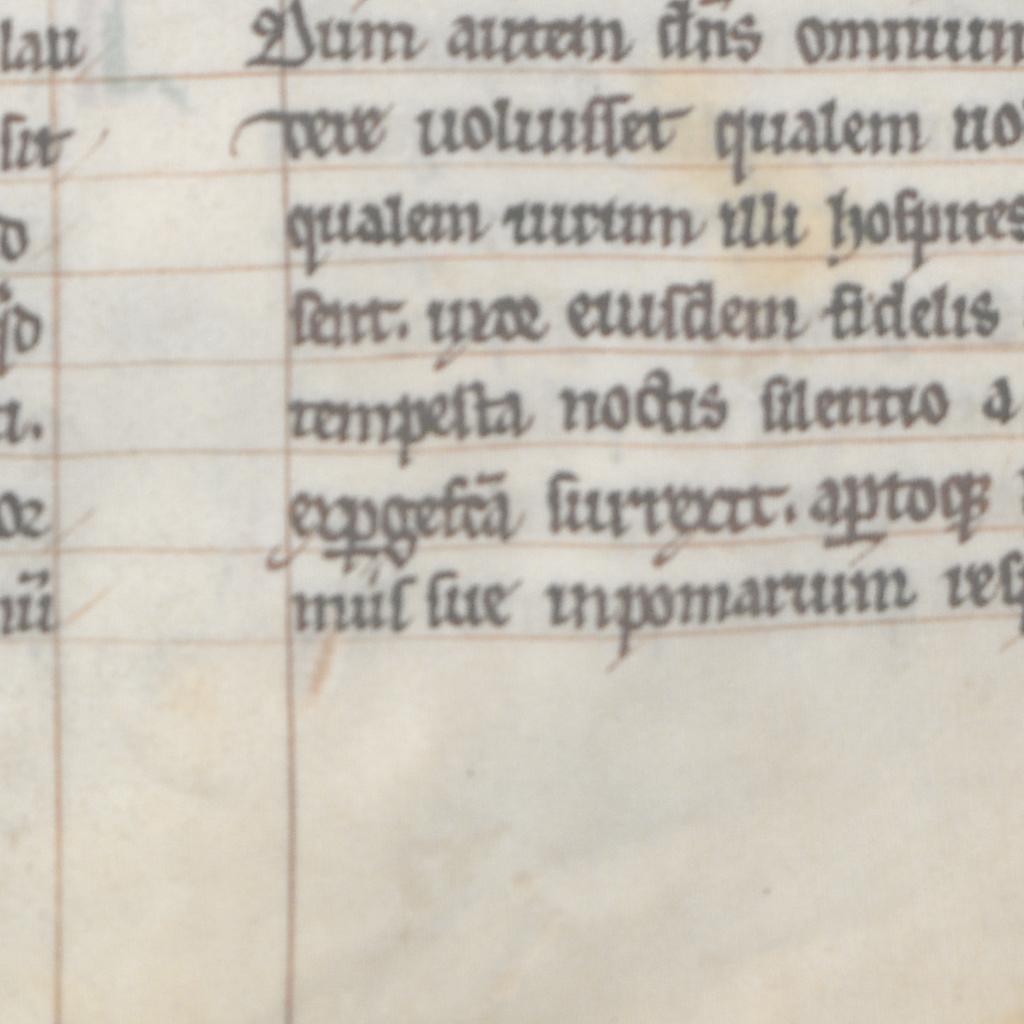 lau
sit
d
qd
ı.
or
nū
Dum autem dn̄s omnium
vere uoluisset qualem no
qualem uirtum illi hospites
sent. uxor eiusdem fidelis
tempesta noctis silentio a
exꝑgefcā surrexit. aꝑtoqꝫ
muis sue inpomarium resp